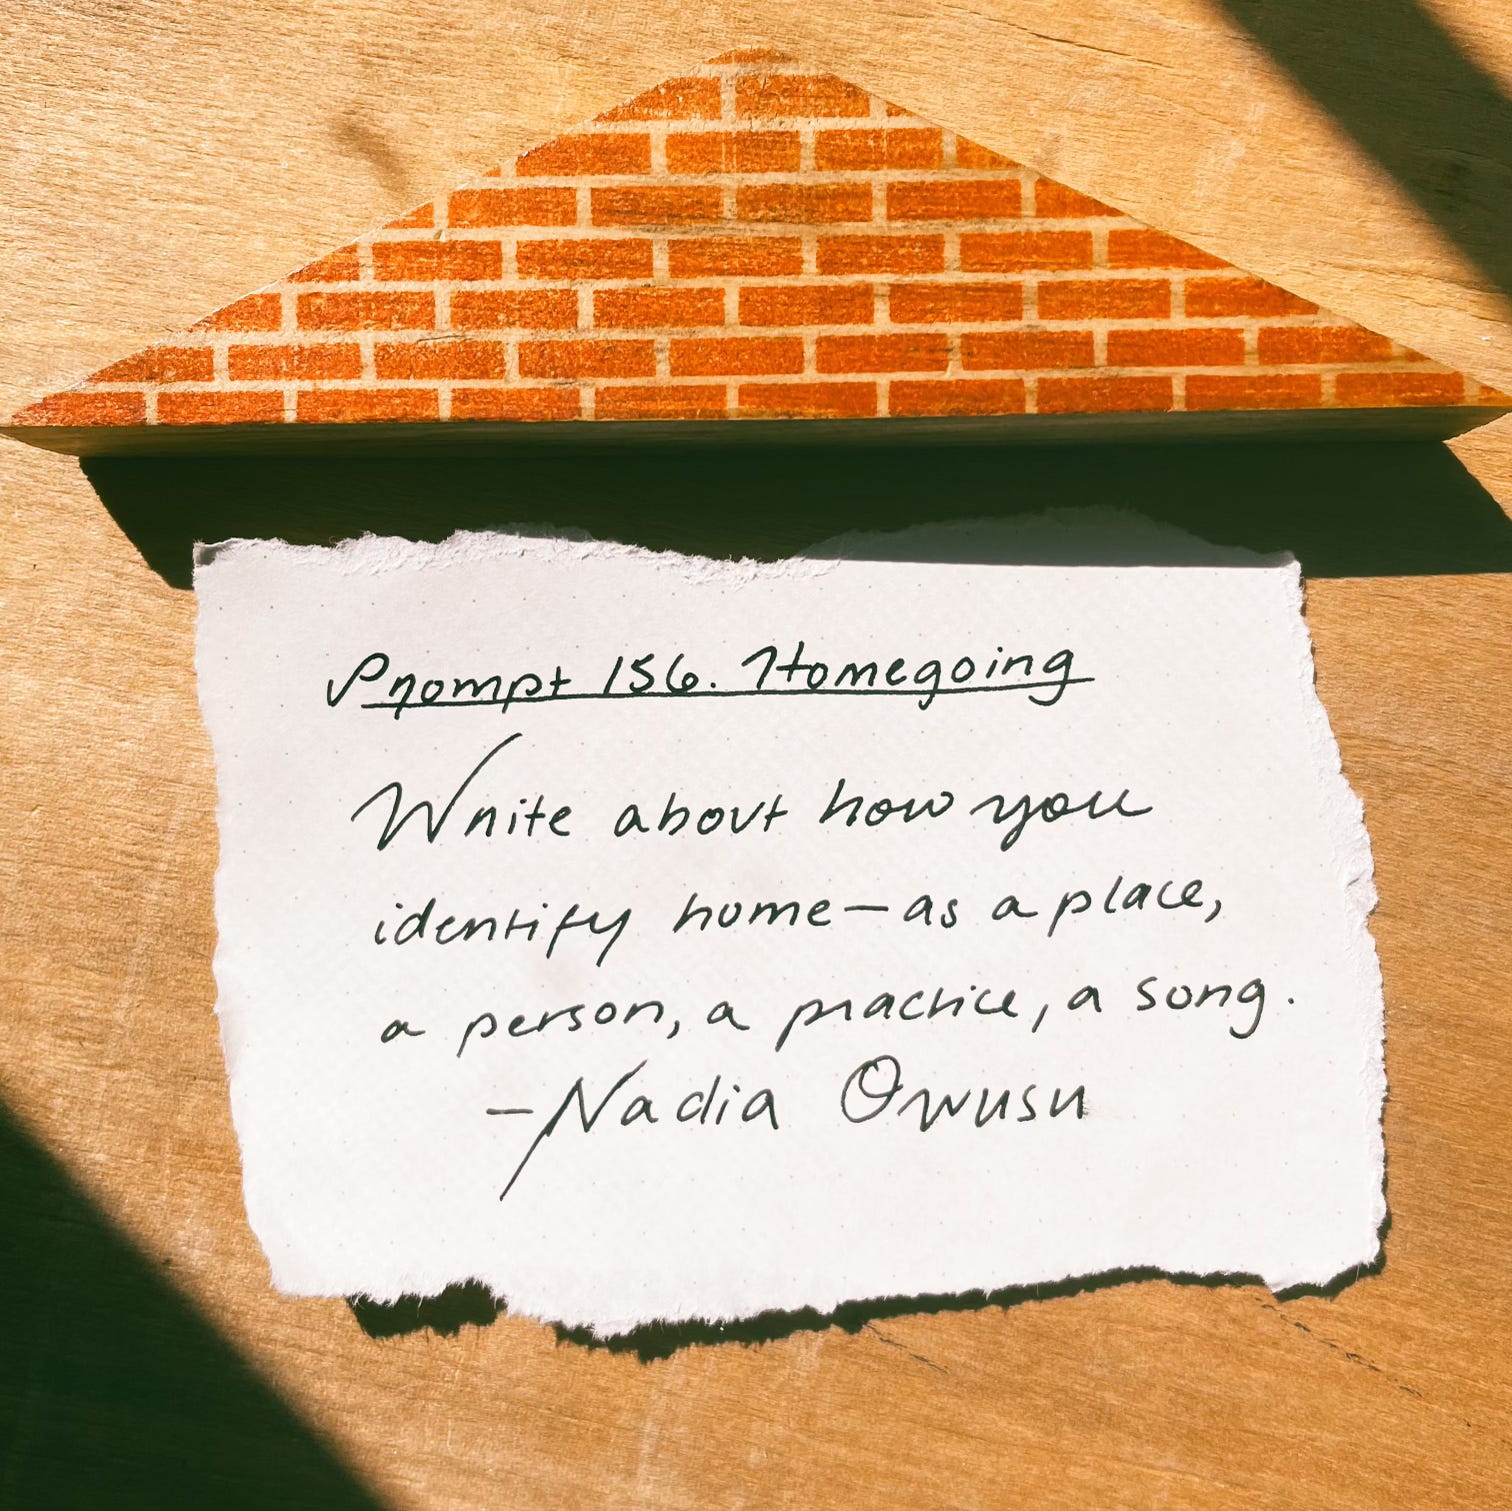 Prompt 156. Homegoing
Write about how you
identify home—as a place,
a person, a practice, a song.
—Nadia Owusu